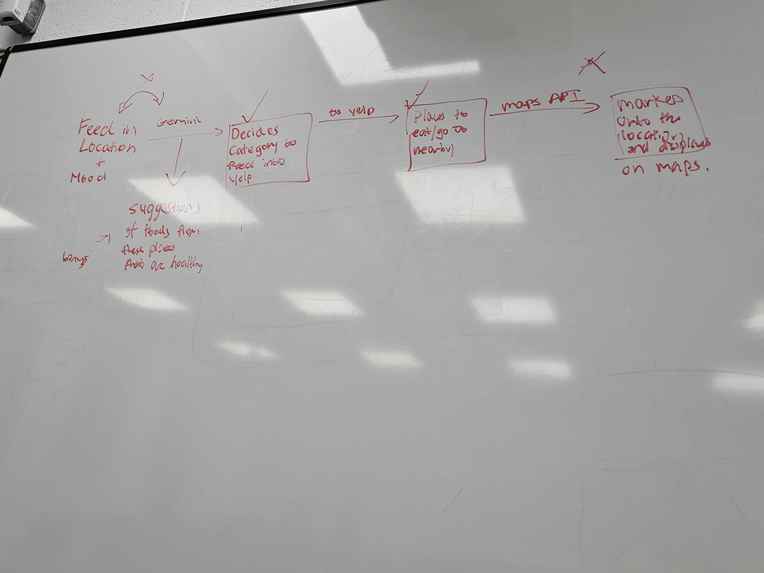 Feed in
Location
+
Mood
Gemini
Decides
Category to
feed into
yelp
to yelp
Places to
eat/go to
nearby
maps API
markes
onto the
location
and displays
on maps.
suggestions
of foods from
these places
that are healthy